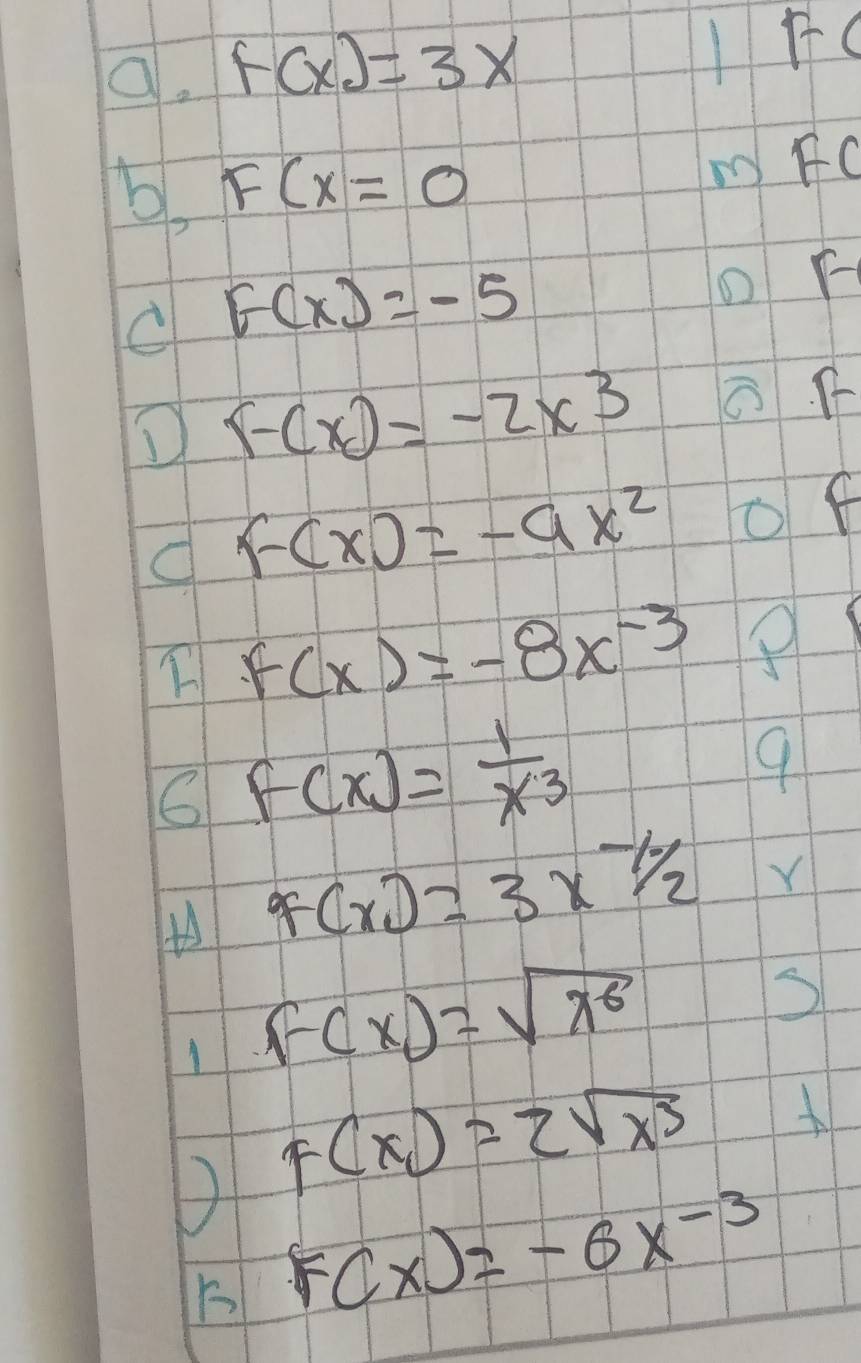 a. F(x)=3x
b, F(x=0
C F(x)=-5
D F(x)=-2x³
C F(x)=-9x²
F F(x)=-8x⁻³
G F(x)=1/x³
H F(x)=3x^-1/2
I F(x)=√x⁶
J F(x)=2√x³
K F(x)=-6x⁻³
l F(
m F(
n F(
ñ F
o F
p
q
r
s
t